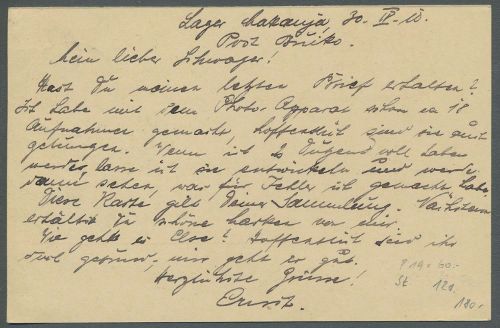 Lager Makanya, 30. IV. 10.
Post Buiko.
Mein lieber Schwager!
Hast Du meinen letzten Brief erhalten?
Ich habe mit dem Photo-Apparat schon ca 18
Aufnahmen gemacht, hoffentlich sind sie gut
gelungen. Wenn ich 2 Dutzend voll haben
werde, lasse ich sie entwickeln und werde
dann sehen, was für Fehler ich gemacht habe.
Diese Karte gilt Deiner Sammlung. Nächstens
erhältst Du schöne Marken von mir.
Wie geht es Else? Hoffentlich seid ihr
wohl gesund, mir geht es gut.
Herzlichste Grüsse!
Ernst.
P 19 · 60.-
St 120
120.-